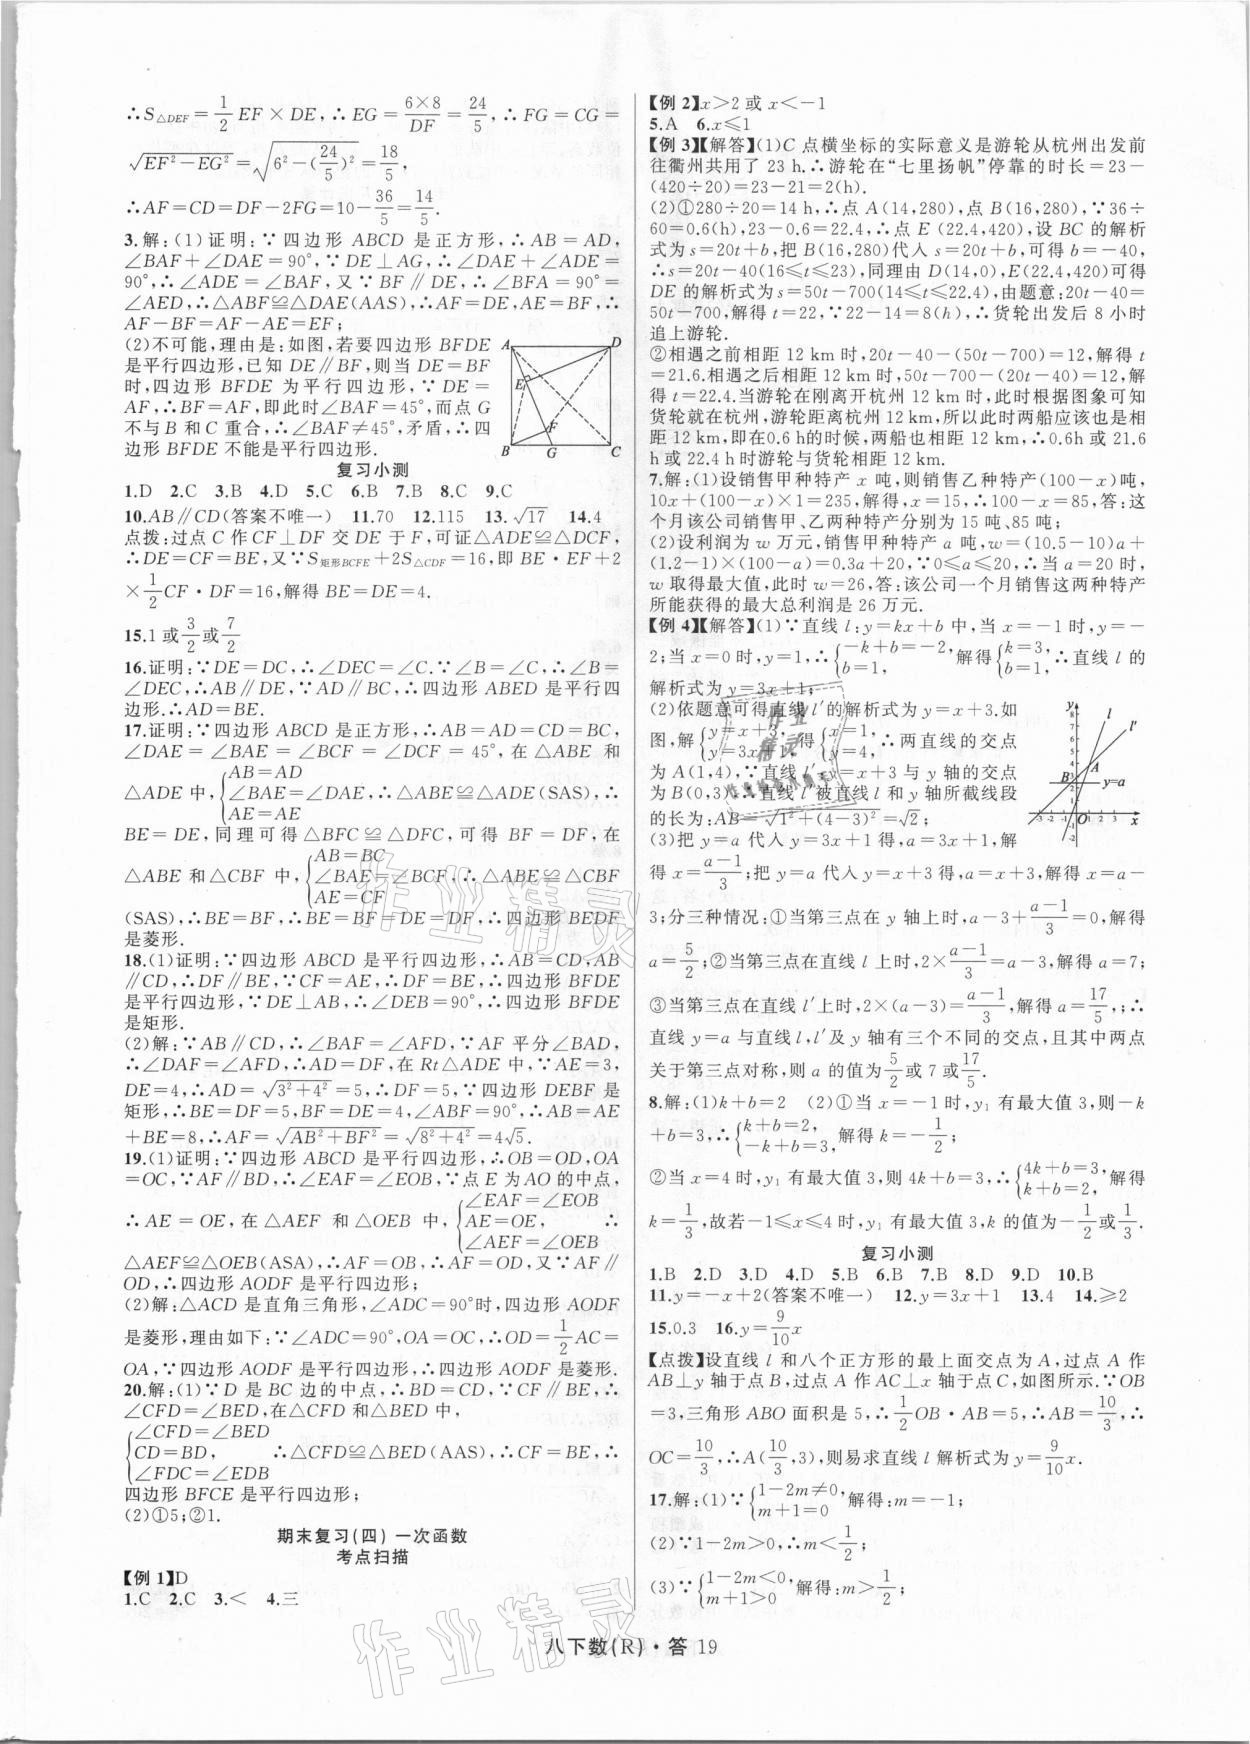 ∴S△DEF=1/2 EF×DE,∴EG=6×8/DF=24/5,∴FG=CG=
√(EF²-EG²)=√(6²-(24/5)²)=18/5,
∴AF=CD=DF-2FG=10-36/5=14/5.
3.解:(1)证明:∵四边形 ABCD 是正方形,∴AB=AD,
∠BAF+∠DAE=90°,∵DE⊥AG,∴∠DAE+∠ADE=
90°,∴∠ADE=∠BAF,又∵BF∥DE,∴∠BFA=90°=
∠AED,∴△ABF≌△DAE(AAS),∴AF=DE,AE=BF,∴
AF-BF=AF-AE=EF;
(2)不可能,理由是:如图,若要四边形 BFDE
是平行四边形,已知 DE∥BF,则当 DE=BF
时,四边形 BFDE 为平行四边形,∵DE=
AF,∴BF=AF,即此时∠BAF=45°,而点 G
不与 B 和 C 重合,∴∠BAF≠45°,矛盾,∴四
边形 BFDE 不能是平行四边形.
A D E F B G C
复习小测
1.D 2.C 3.B 4.D 5.C 6.B 7.B 8.C 9.C
10.AB∥CD(答案不唯一) 11.70 12.115 13.√17 14.4
点拨:过点 C 作 CF⊥DF 交 DE 于 F,可证△ADE≌△DCF,
∴DE=CF=BE,又∵S矩形BCFE+2S△CDF=16,即 BE·EF+2
×1/2CF·DF=16,解得 BE=DE=4.
15.1 或3/2或7/2
16.证明:∵DE=DC,∴∠DEC=∠C.∵∠B=∠C,∴∠B=
∠DEC,∴AB∥DE,∵AD∥BC,∴四边形 ABED 是平行四
边形.∴AD=BE.
17.证明:∵四边形 ABCD 是正方形,∴AB=AD=CD=BC,
∠DAE=∠BAE=∠BCF=∠DCF=45°,在△ABE 和
△ADE 中,{AB=AD
∠BAE=∠DAE,∴△ABE≌△ADE(SAS),∴
AE=AE
BE=DE,同理可得△BFC≌△DFC,可得 BF=DF,在
△ABE 和△CBF 中,{AB=BC
∠BAE=∠BCF,∴△ABE≌△CBF
AE=CF
(SAS),∴BE=BF,∴BE=BF=DE=DF,∴四边形 BEDF
是菱形.
18.(1)证明:∵四边形 ABCD 是平行四边形,∴AB=CD,AB
∥CD,∴DF∥BE,∵CF=AE,∴DF=BE,∴四边形 BFDE
是平行四边形,∵DE⊥AB,∴∠DEB=90°,∴四边形 BFDE
是矩形.
(2)解:∵AB∥CD,∴∠BAF=∠AFD,∵AF 平分∠BAD,
∴∠DAF=∠AFD,∴AD=DF,在 Rt△ADE 中,∵AE=3,
DE=4,∴AD=√(3²+4²)=5,∴DF=5,∵四边形 DEBF 是
矩形,∴BE=DF=5,BF=DE=4,∠ABF=90°,∴AB=AE
+BE=8,∴AF=√(AB²+BF²)=√(8²+4²)=4√5.
19.(1)证明:∵四边形 ABCD 是平行四边形,∴OB=OD,OA
=OC,∵AF∥BD,∴∠EAF=∠EOB,∵点 E 为 AO 的中点,
∴AE=OE,在△AEF 和△OEB 中,{∠EAF=∠EOB
AE=OE, ∴
∠AEF=∠OEB
△AEF≌△OEB(ASA),∴AF=OB,∴AF=OD,又∵AF∥
OD,∴四边形 AODF 是平行四边形;
(2)解:△ACD 是直角三角形,∠ADC=90°时,四边形 AODF
是菱形,理由如下:∵∠ADC=90°,OA=OC,∴OD=1/2AC=
OA,∵四边形 AODF 是平行四边形,∴四边形 AODF 是菱形.
20.解:(1)∵D 是 BC 边的中点,∴BD=CD,∵CF∥BE,∴
∠CFD=∠BED,在△CFD 和△BED 中,
{∠CFD=∠BED
CD=BD, ∴△CFD≌△BED(AAS),∴CF=BE,∴
∠FDC=∠EDB
四边形 BFCE 是平行四边形;
(2)①5;②1.
期末复习(四) 一次函数
考点扫描
【例 1】D
1.C 2.C 3.< 4.三
【例 2】x>2 或 x<-1
5.A 6.x≤1
【例 3】【解答】(1)C 点横坐标的实际意义是游轮从杭州出发前
往衢州共用了 23 h.∴游轮在“七里扬帆”停靠的时长=23-
(420÷20)=23-21=2(h).
(2)①280÷20=14 h,∴点 A(14,280),点 B(16,280),∵36÷
60=0.6(h),23-0.6=22.4,∴点 E(22.4,420),设 BC 的解析
式为 s=20t+b,把 B(16,280)代人 s=20t+b,可得 b=-40,
∴s=20t-40(16≤t≤23),同理由 D(14,0),E(22.4,420)可得
DE 的解析式为 s=50t-700(14≤t≤22.4),由题意:20t-40=
50t-700,解得 t=22,∵22-14=8(h),∴货轮出发后 8 小时
追上游轮.
②相遇之前相距 12 km 时,20t-40-(50t-700)=12,解得 t
=21.6.相遇之后相距 12 km 时,50t-700-(20t-40)=12,解得
t=22.4,当游轮在刚离开杭州 12 km 时,此时根据图象可知
货轮就在杭州,游轮距离杭州 12 km,所以此时两船应该也是相
距 12 km,即在0.6 h的时候,两船也相距 12 km,∴0.6h 或 21.6
h 或 22.4 h 时游轮与货轮相距 12 km.
7.解:(1)设销售甲种特产 x 吨,则销售乙种特产(100-x)吨,
10x+(100-x)×1=235,解得,x=15,∴100-x=85,答:这
个月该公司销售甲、乙两种特产分别为 15 吨、85 吨;
(2)设利润为 w 万元,销售甲种特产 a 吨,w=(10.5-10)a+
(1.2-1)×(100-a)=0.3a+20,∵0≤a≤20,∴当 a=20 时,
w 取得最大值,此时 w=26,答:该公司一个月销售这两种特产
所能获得的最大总利润是 26 万元.
【例 4】【解答】(1)∵直线 l:y=kx+b 中,当 x=-1 时,y=-
2;当 x=0 时,y=1,∴{-k+b=-2, b=1, 解得{k=3, b=1, ∴直线 l 的
解析式为 y=3x+1;
(2)依题意可得直线 l′的解析式为 y=x+3.如
图,解{y=x+3, y=3x+1. 得{x=1, y=4, ∴两直线的交点
为 A(1,4),∵直线 l′:y=x+3 与 y 轴的交点
为 B(0,3),∴直线 l′被直线 l 和 y 轴所截线段
的长为:AB=√(1²+(4-3)²)=√2;
(3)把 y=a 代人 y=3x+1 得,a=3x+1,解
得 x=(a-1)/3;把 y=a 代人 y=x+3 得,a=x+3,解得 x=a-
3;分三种情况:①当第三点在 y 轴上时,a-3+(a-1)/3=0,解得
a=5/2;②当第三点在直线 l 上时,2×(a-1)/3=a-3,解得 a=7;
③当第三点在直线 l′上时,2×(a-3)=(a-1)/3,解得 a=17/5,;∴
直线 y=a 与直线 l,l′及 y 轴有三个不同的交点,且其中两点
关于第三点对称,则 a 的值为5/2或 7 或17/5.
8.解:(1)k+b=2 (2)①当 x=-1 时,y₁ 有最大值 3,则-k
+b=3,∴{k+b=2, -k+b=3, 解得 k=-1/2;
②当 x=4 时,y₁ 有最大值 3,则 4k+b=3,∴{4k+b=3, k+b=2, 解得
k=1/3,故若-1≤x≤4 时,y₁ 有最大值 3,k 的值为-1/2或1/3.
复习小测
1.B 2.D 3.D 4.D 5.B 6.B 7.B 8.D 9.D 10.B
11.y=-x+2(答案不唯一) 12.y=3x+1 13.4 14.≥2
15.0.3 16.y=9/10x
【点拨】设直线 l 和八个正方形的最上面交点为 A,过点 A 作
AB⊥y 轴于点 B,过点 A 作 AC⊥x 轴于点 C,如图所示.∵OB
=3,三角形 ABO 面积是 5,∴1/2OB·AB=5,∴AB=10/3,∴
OC=10/3,∴A(10/3,3),则易求直线 l 解析式为 y=9/10x.
17.解:(1)∵{1-2m≠0, m+1=0 解得:m=-1;
(2)∵1-2m>0,∴m<1/2;
(3)∵{1-2m<0, m+1>0 解得:m>1/2;
八下数(R)·答 19
作业精灵
作业精灵
作业精灵